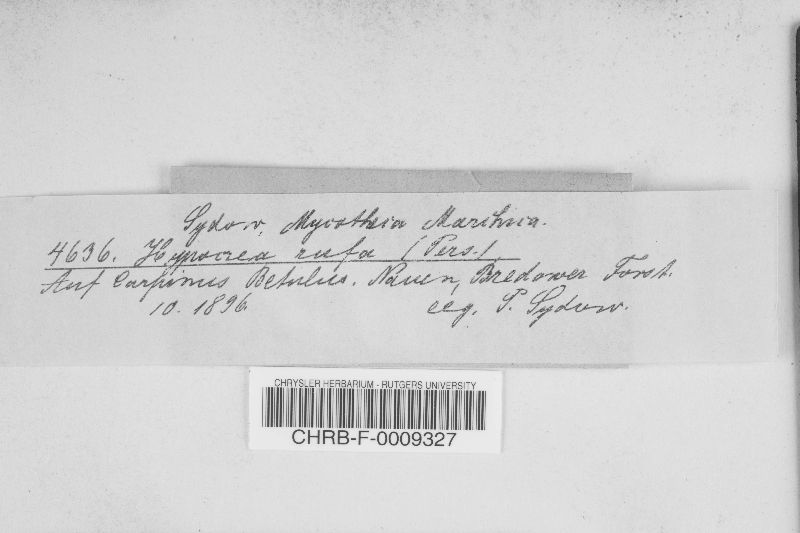 Sydow, Mycotheca Marchica.
4636. Hypocrea rufa (Pers.)
Auf Carpinus Betulus. Nauen, Bredower Forst.
10. 1896. leg. P. Sydow.
CHRYSLER HERBARIUM - RUTGERS UNIVERSITY
CHRB-F-0009327